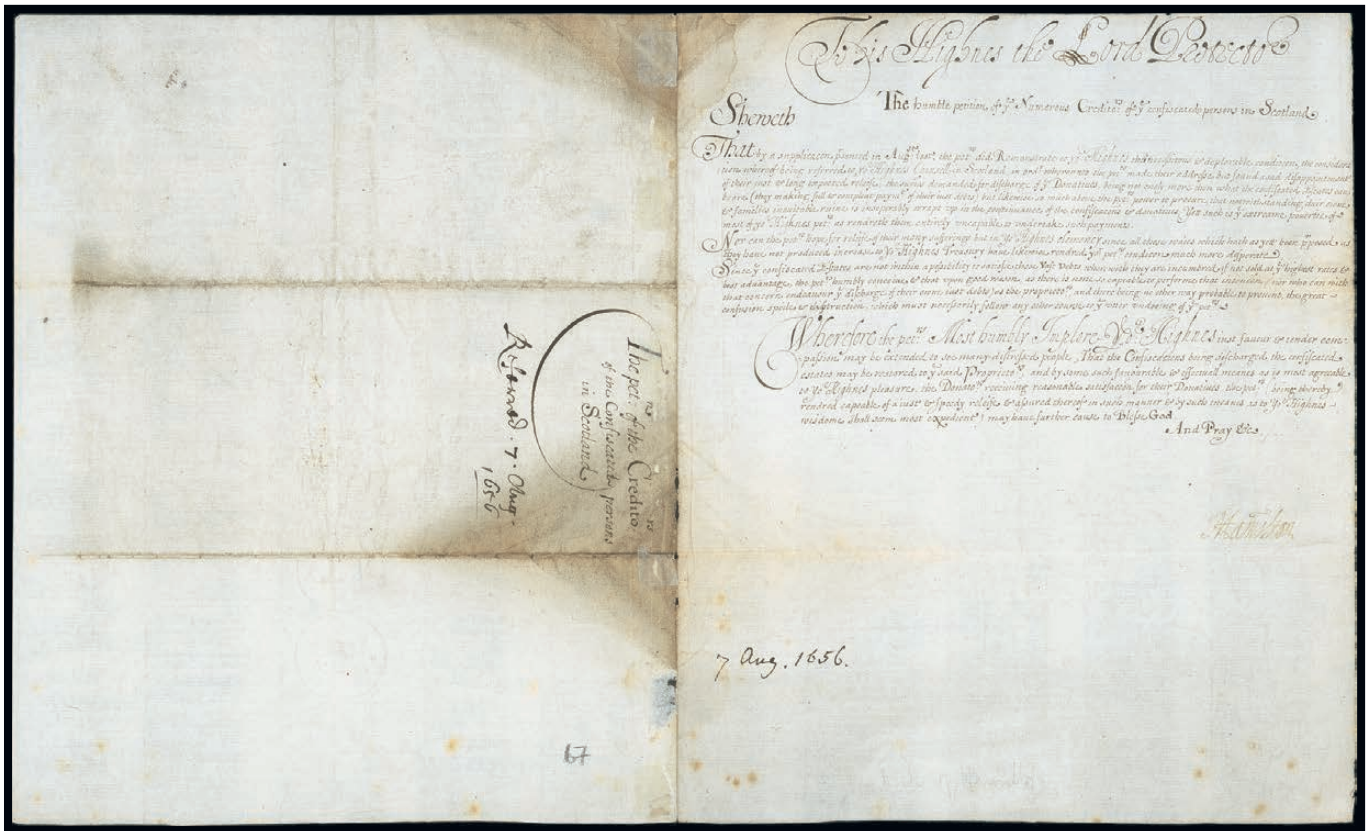 The pet:rs of the Credito:rs
of the Confiscated persons
in Scotland
7. Aug.
1656
67
To his Highnes the Lord Protector
The humble petition of ye Numerous Credito:rs of ye confiscated persons in Scotland
Sheweth
That by a supplicacon p̄sented in Augst last, the pet:rs did Remonstrate to yo:r Highnes their necessitous & deplorable condition, the considerat
ion whereof being referred to yo:r Highnes Counsell in Scotland, in order whereunto the pet:rs made their addresse, but found disappointment
of their just & long expected releife, the sumes demanded for discharge of ye Donatives being not onely more then what the confiscated Estates can
beare (they making full & compleat paymt of their just debts) but likewise so much above the pet:rs power to procure, that notwithstanding their owne
& families inevitable ruine is inseparably wrapt up in the continuance of the confiscacons & donatives Yet such is ye extreame povertie of ye
most of yo:r Highnes pet:rs as rendreth them entirely uncapable to undertake such payments.
Nor can the pet:rs hope for releife of their many sufferings but in yo:r Highnes clemency since all those waies which hath as yet been p̄posed as
they have not produced increase to yo:r Highnes Treasury have likewise rendred yo:r pet:rs condicon much more desperate
Since ye confiscated Estates are not within a possibility to satisfie those Vast Debts wherewith they are incumbred, if not sold at ye highest rates &
best advantage, the pet:rs humbly conceive, & that upon good reason, as there is none so capable to performe that intencon nor who can with
that concerne endeavour ye discharge of their owne just debts, as the propriet:rs and there being no other way probable to prevent the great
confusion, spoile & distruction, which must necessarily follow any other course, to ye utter undoeing of ye pet:rs
Wherefore the pet:rs Most humbly Implore Yo:r Highnes just favour & tender com
passion may be extended to soe many distressed people, That the Confiscations being discharged, the confiscated
estates may be restored to ye said Propriet:rs and by some such favourable & effectuall meanes as is most agreeable
to yo:r Highnes pleasure, the Donato:rs receiving reasonable satisfaccon for their Donatives the pet:rs being thereby
rendred capeable of a just & speedy releife, & assured thereof in such manner & by such meanes as to yo:r Highnes
wisdom shall seem most expedient, may have further cause to Blesse God
And Pray &c
Hamilton
7 Aug. 1656.